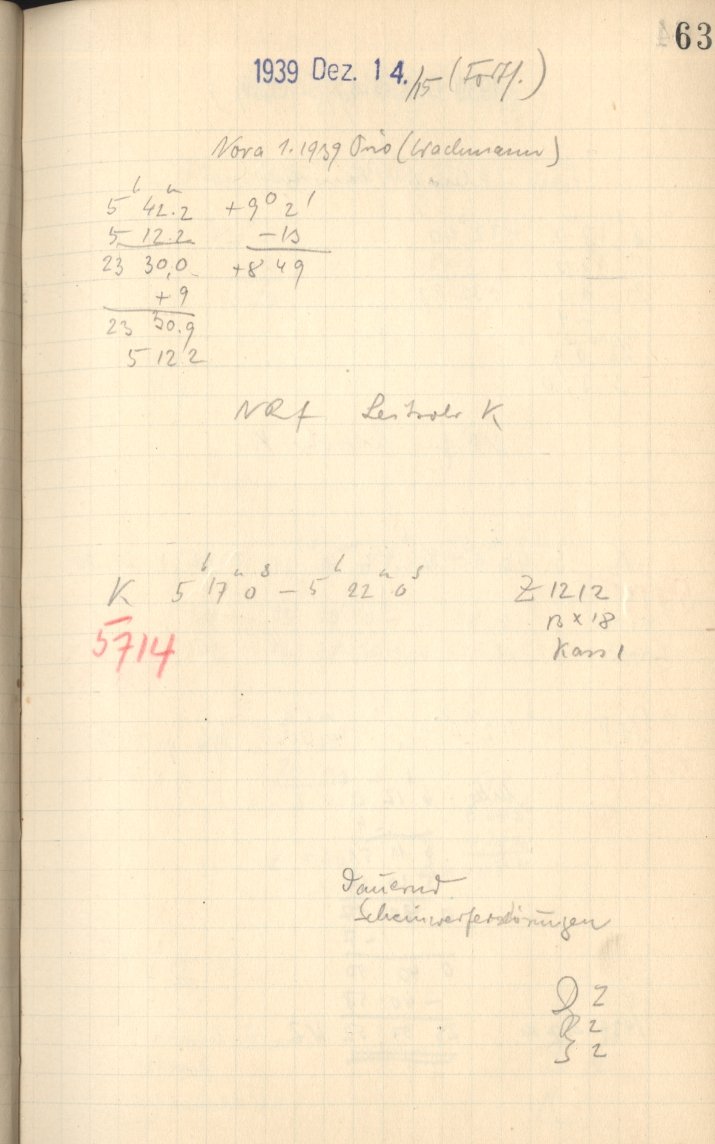 63
1939 Dez. 14./15 (Forts.)
Nova 1.1939 Orio (Wachmann)
5 h 42.2 m +9° 2'
5 12.2 −13
23 30,0 +8 49
+9
23 30.9
5 12 2
NRf Leitrohr K
K 5h 17m 0s − 5h 22m 0s Z 1212
5714 13 x 18
Kass 1
Dauernd
Scheinwerferstörungen
2
2
2